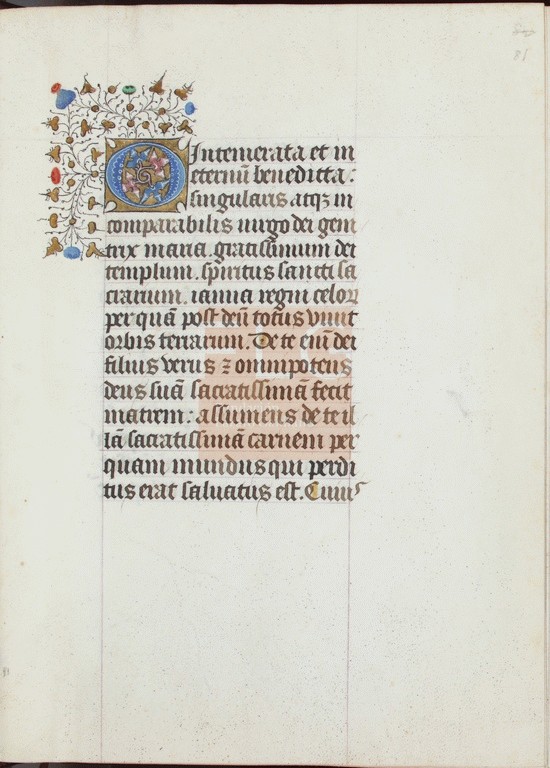 O Intemerata et in
eternū benedicta :
singularis atqꝫ in
comparabilis uirgo dei geni
trix maria. gratissimum dei
templum. spiritus sancti sa
crarium. ianua regni celoꝝ
per quā post deū totus viuit
orbis terrarum. De te eni dei
filius verus ⁊ omnipotens
deus suā sacratissimā fecit
matrem : assumens de te il
lā sacratissimā carnem per
quam mundus qui perdi
tus erat saluatus est. Cuius